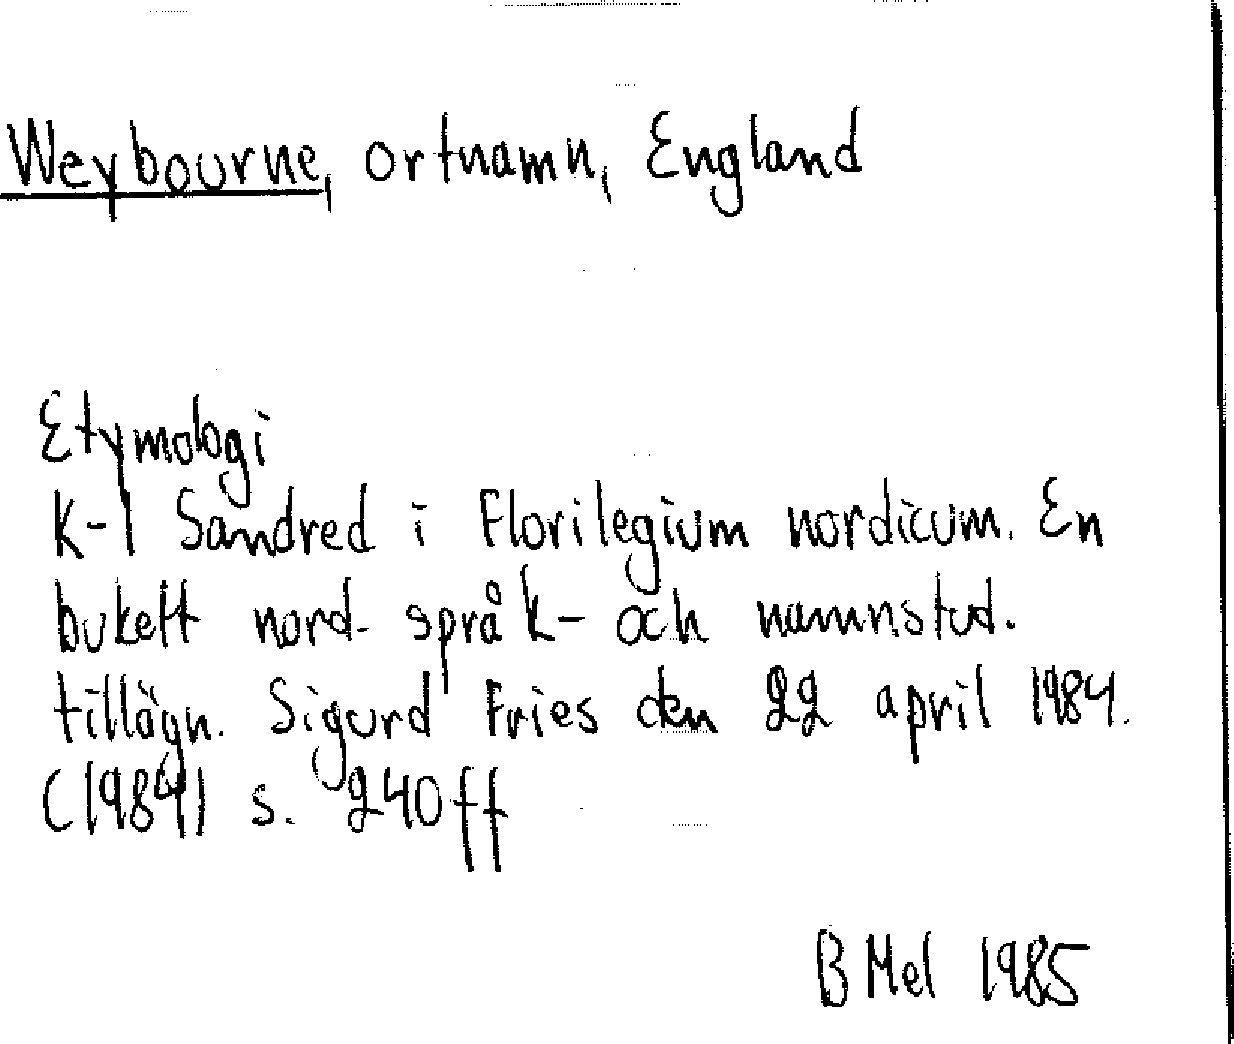 Weybourne, ortnamn, England
Etymologi
K-I Sandred i Florilegium nordicum. En
bukett nord. språk- och namnstud.
tillägn. Sigurd Fries den 22 april 1984.
(1984) s. 240ff
B Mel 1985